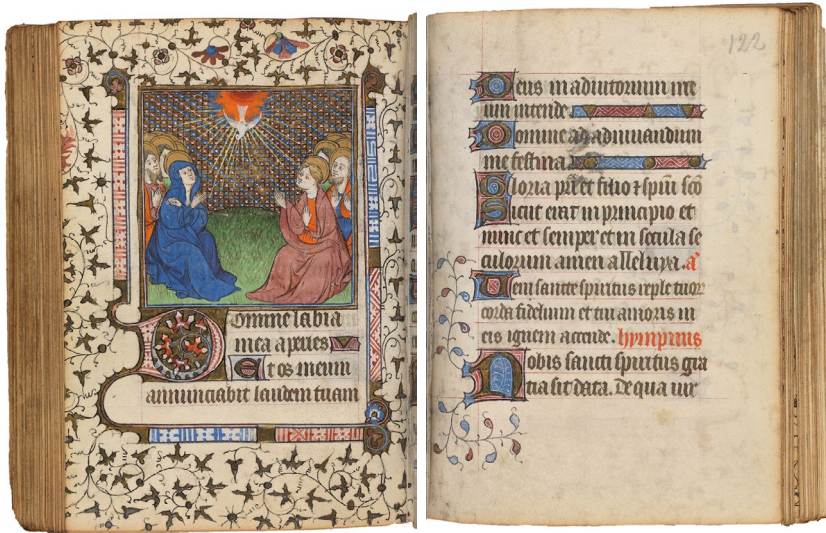 Domine labia
mea aperies
Et os meum
annunciabit laudem tuam
122
Deus in adiutorium me
um intende.
Domine ad adiuuandum
me festina
Gloria pri et filio ⁊ spui sco
Sicut erat in principio et
nunc et semper et in secula se
culorum amen alleluya. a
Ueni sancte spiritus reple tuor
corda fidelium et tui amoris in
eis ignem accende. hympnus
Nobis sancti spiritus gra
tia sit data. De qua uir